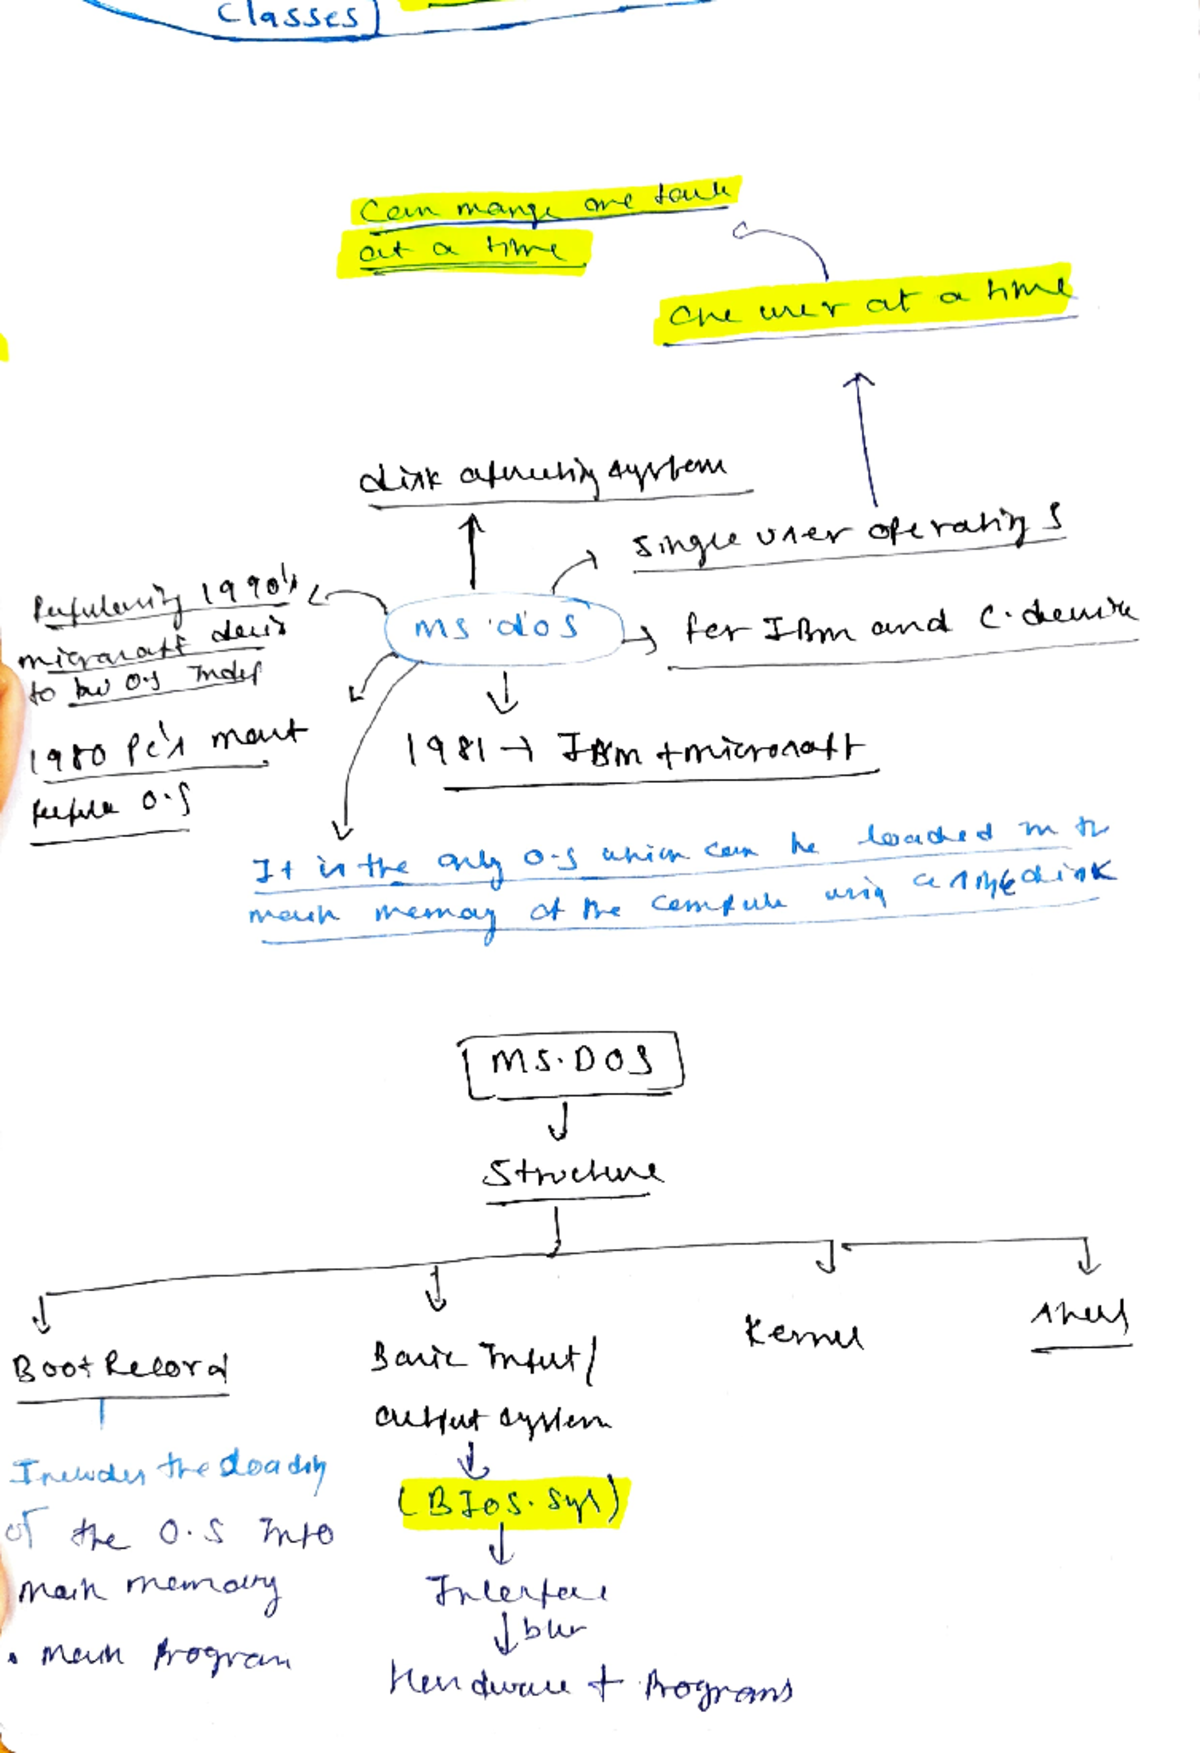 Classes
Can mange one task
at a time
One user at a time
disk operating system
Single user operating S
Popularity 1990's
microsoft
to O.S
MS.DOS
for IBM and C.
1980 Pc's most
O.S
1981 → IBM + microsoft
It is the only O.S which can be loaded in the
main memory of the computer using disk
MS.DOS
Structure
Boot Record
Basic Input/
output system
Kernel
shell
Includes the loading
of the O.S Into
main memory
• main Program
(BIOS.sys)
Interface
btw
Hardware + Programs